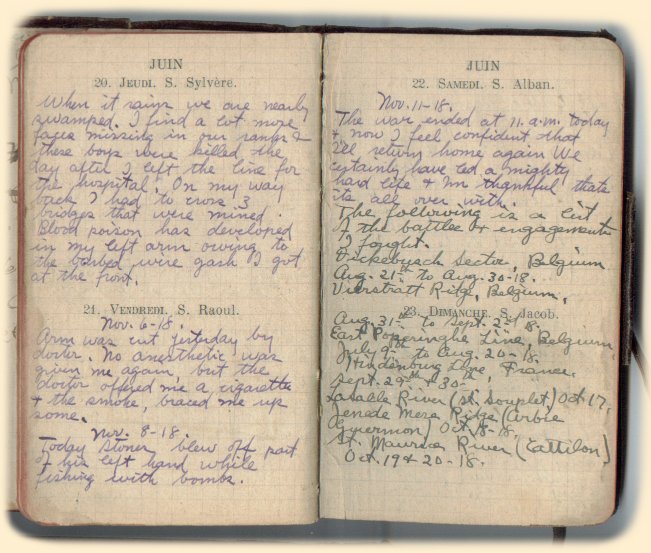 JUIN
20. JEUDI. S. Sylvère.
When it rains we are nearly
swamped. I find a lot more
faces missing in our ranks &
these boys were killed the
day after I left the line for
the hospital. On my way
back I had to cross 3
bridges that were mined.
Blood poison has developed
in my left arm owing to
the barbed wire gash I got
at the front.
21. VENDREDI. S. Raoul.
Nov. 6-18.
Arm was cut yesterday by
doctor. No anesthetic was
given me again, but the
doctor offered me a cigarette
& the smoke, braced me up
some.
Nov. 8-18.
Today Stoner blew off part
of his left hand while
fishing with bombs.
JUIN
22. SAMEDI. S. Alban.
Nov. 11-18.
The war ended at 11. a.m. today
& now I feel confident that
I'll return home again We
certainly have led a mighty
hard life & I'm thankful thats
its all over with.
The following is a list
of the battles or engagements
I fought.
Dickebusch Sector, Belgium
Aug. 21st to Aug. 30-18.
Vierstratt Ridge, Belgium.
Aug. 31st to Sept. 2nd 18.
23. DIMANCHE. S. Jacob.
East Poperinghe Line, Belgium.
July 9th to Aug. 20-18.
Hindenburg Line, France.
Sept. 29th & 30th
LaSalle River (St. Souplet) Oct 17.
Jenede Mere Ridge (Arbie
Guernon) Oct 18-18.
St. Maurice River (Cattilon)
Oct. 19 & 20-18.